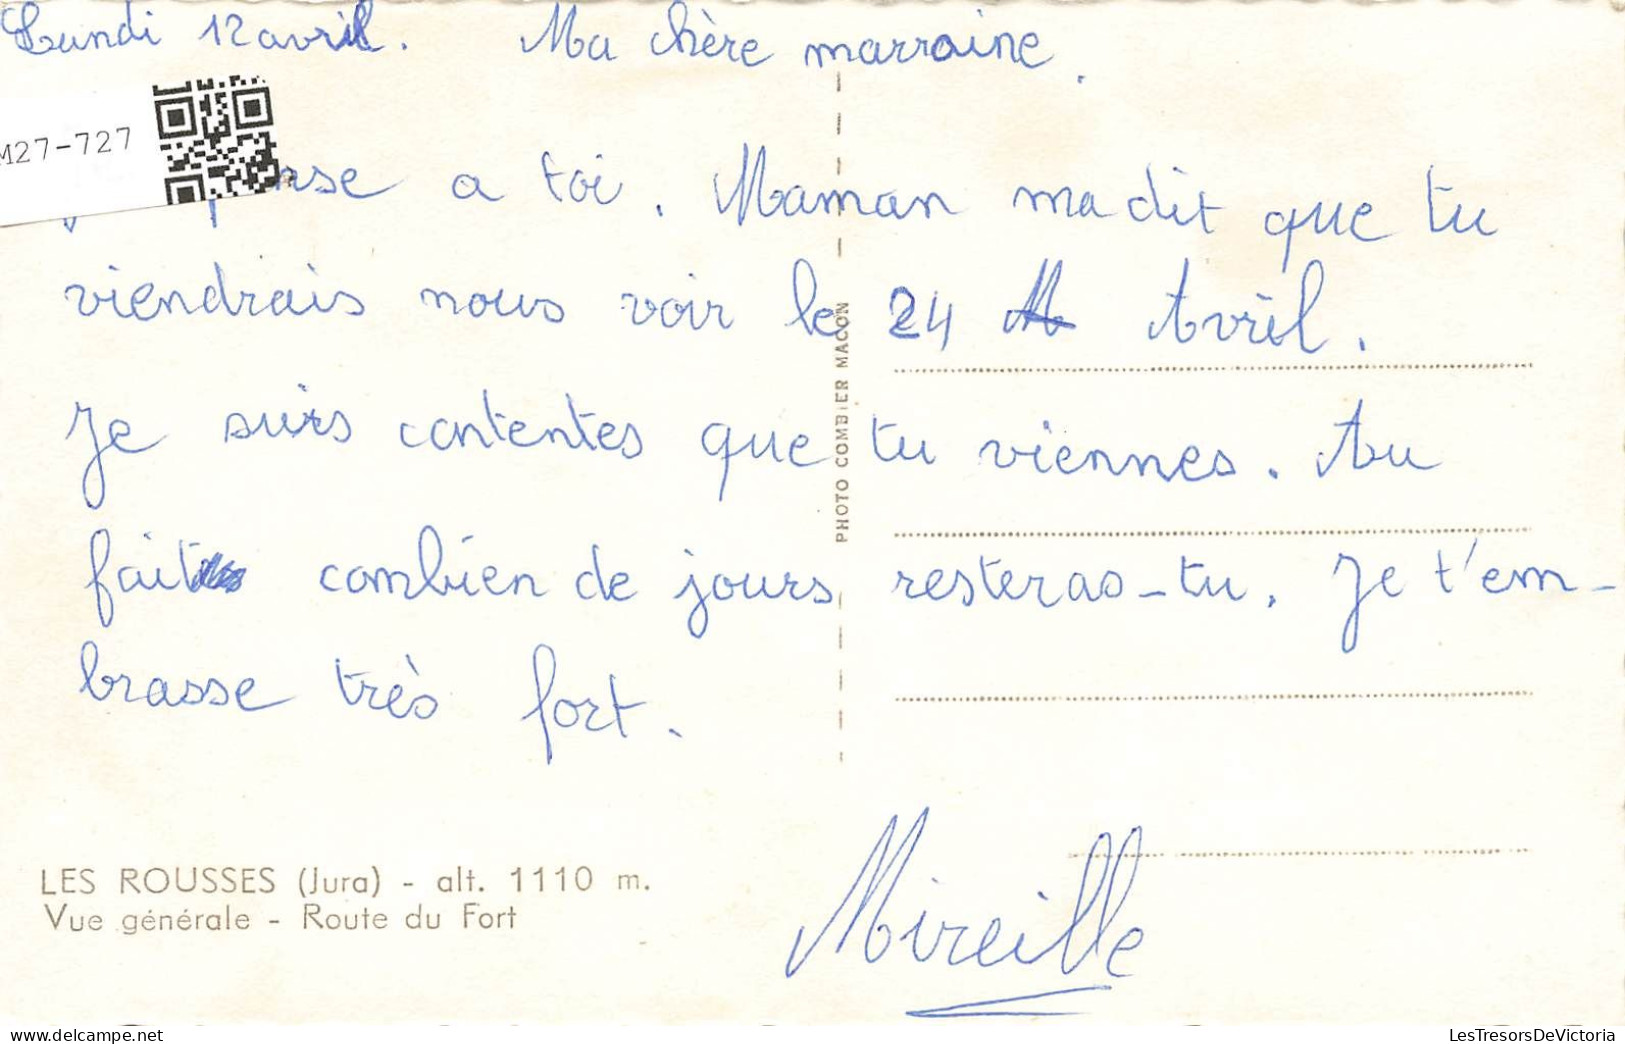 Lundi 12 avril. Ma chère marraine.
M27-727
a toi. Maman ma dit que tu
viendrais nous voir le 24 Avril.
Je suis contentes que tu viennes. Au
fait combien de jours resteras-tu. Je t'em-
brasse très fort.
Mireille
PHOTO COMBIER MACON
LES ROUSSES (Jura) - alt. 1110 m.
Vue générale - Route du Fort
LesTresorsDeVictoria